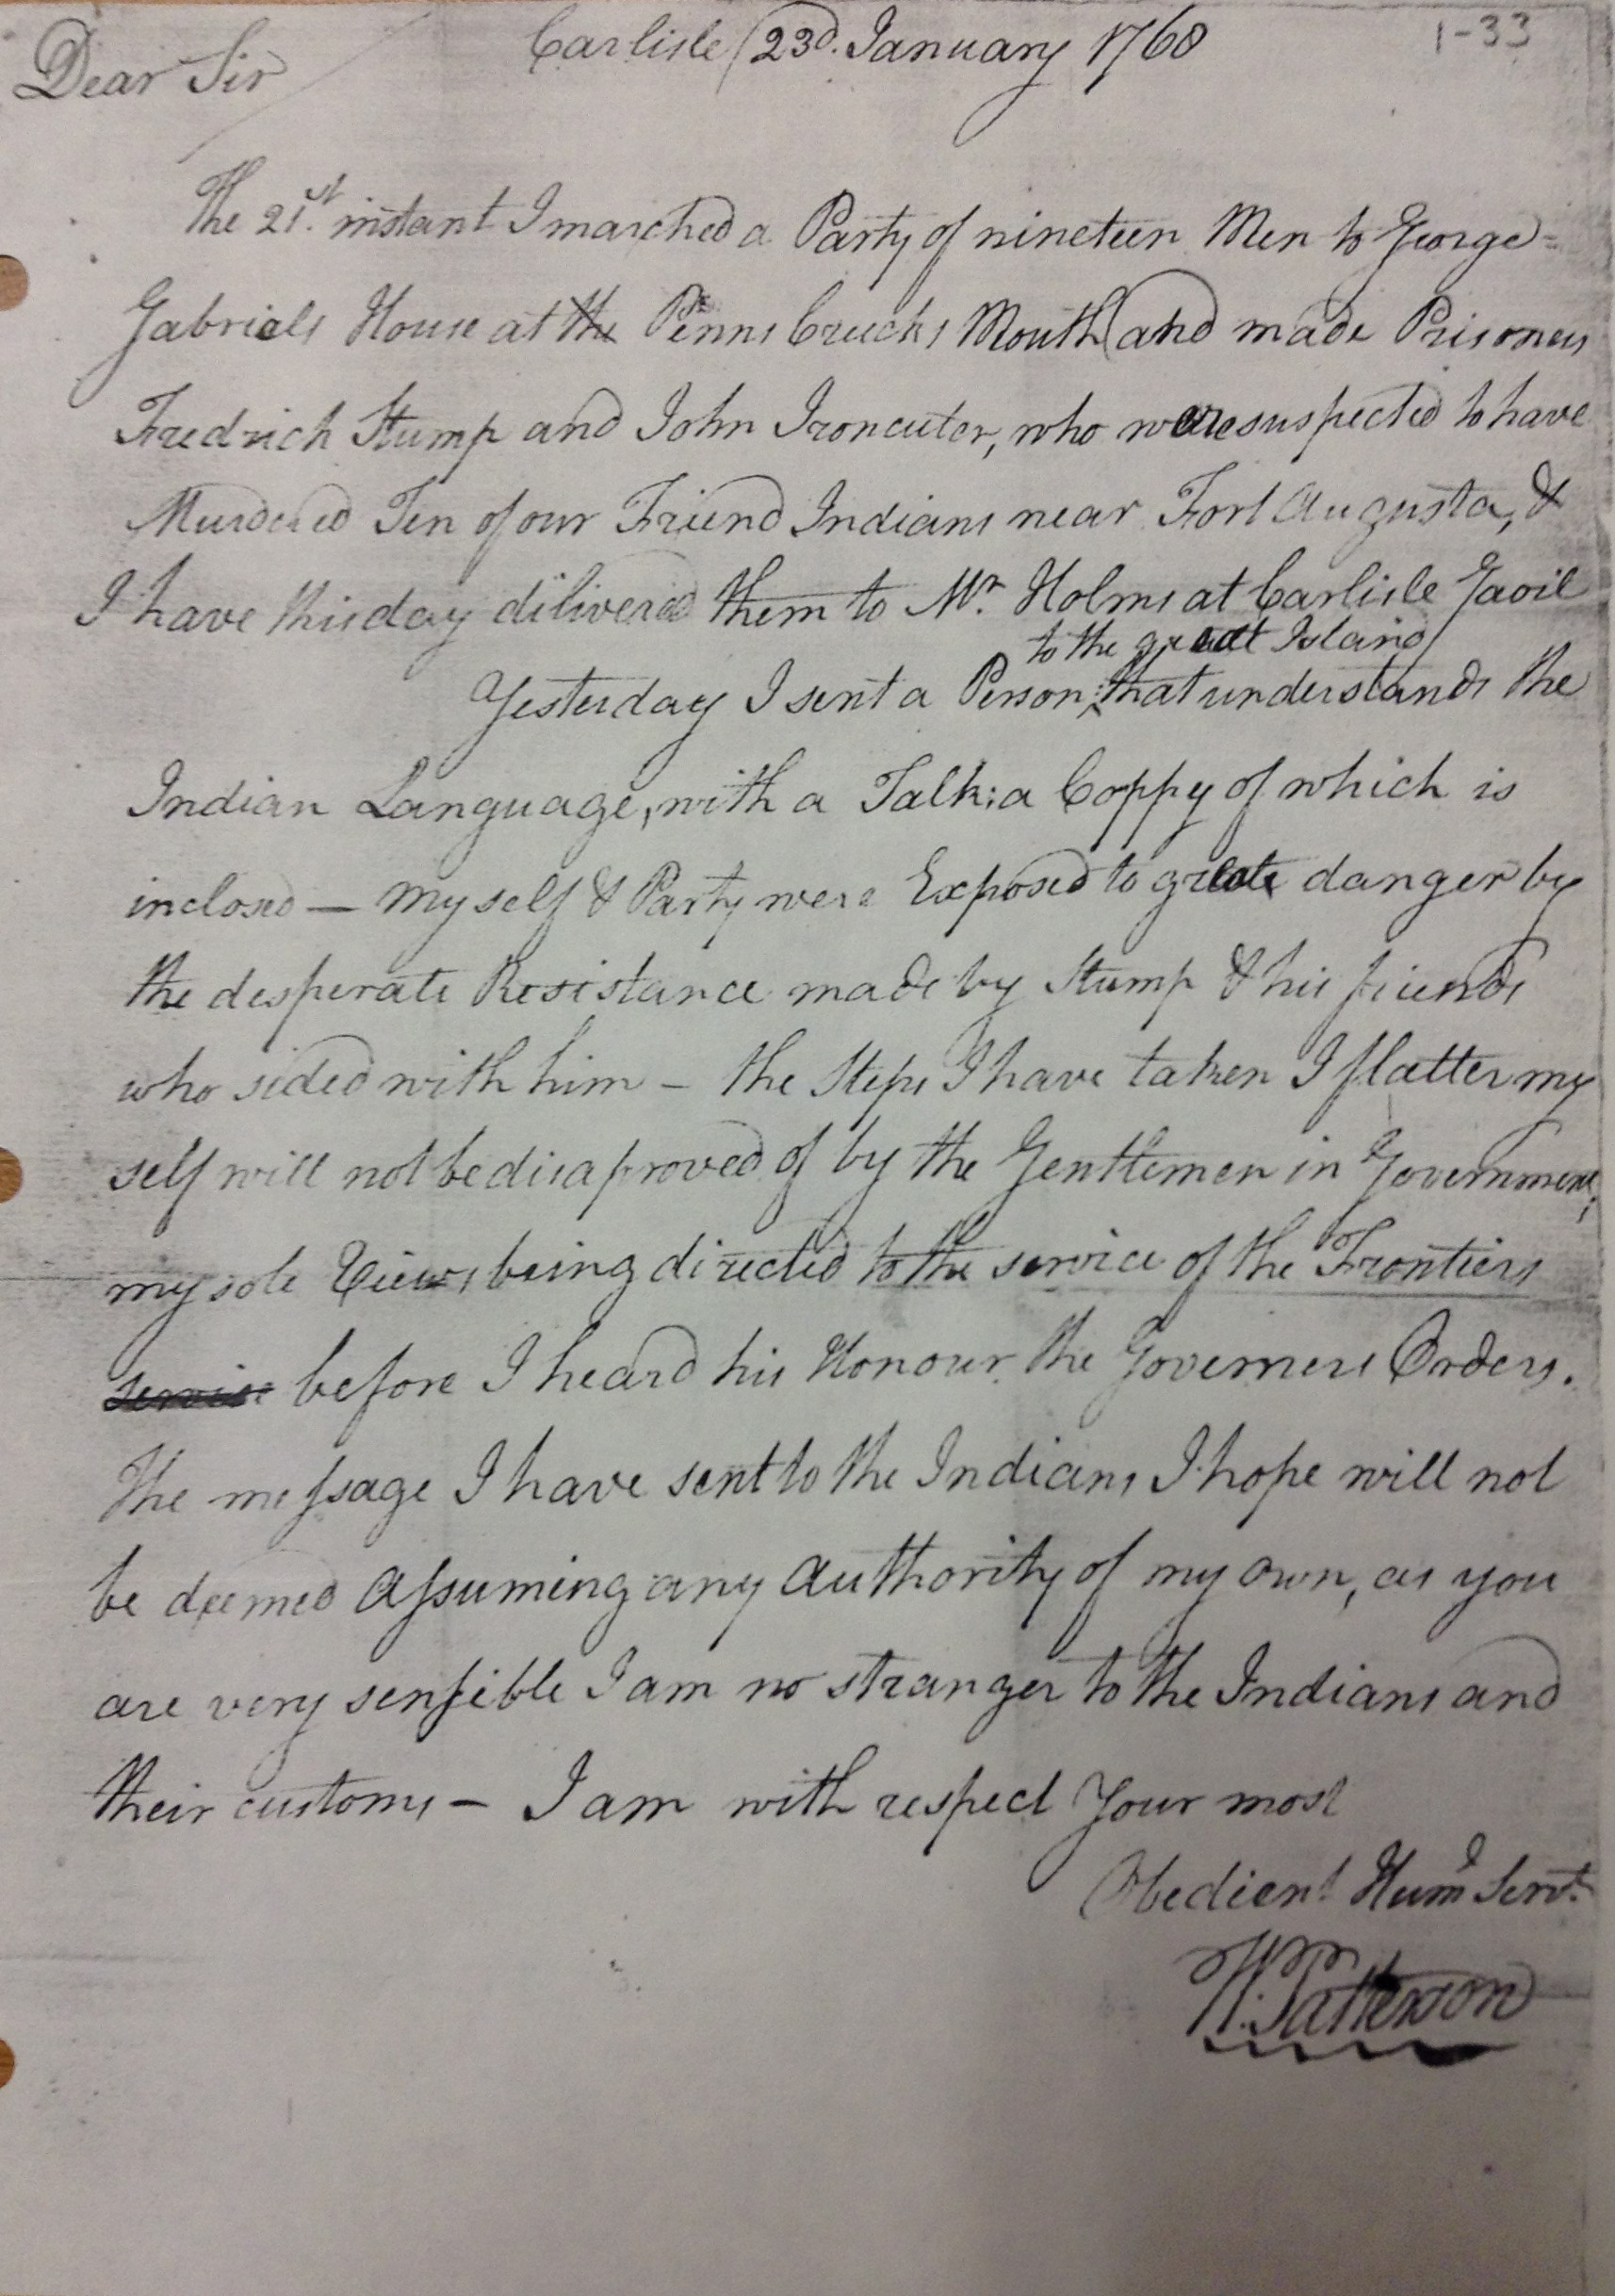 Carlisle 23d. January 1768
1-33
Dear Sir
The 21st. instant I marched a Party of nineteen Men to George=
Gabriels House at the Penns Creecks Mouth and made Prisoners
Fredrich Stump and John Ironcuter, who were suspected to have
Murdered Ten of our Friend Indians near Fort Augusta, &
I have this day dilivered them to Mr. Holms at Carlisle Gaoil
to the great Island
Yesterday I sent a Person that understands the
Indian Language, with a Talk; a Coppy of which is
inclosed — my self & Party were Exposed to greate danger by
the desperate Resistance made by Stump & his friends
who sided with him – the Steps I have taken I flatter my
self will not be disaproved of by the Gentlemen in Government,
my sole Views being directed to the service of the Frontiers
service before I heard his Honour the Governers Orders.
The message I have sent to the Indians I hope will not
be deemed assuming any authority of my own, as you
are very sensible I am no stranger to the Indians and
their customs – I am with respect Your most
Obedient Huml Servt.
Wm Patterson